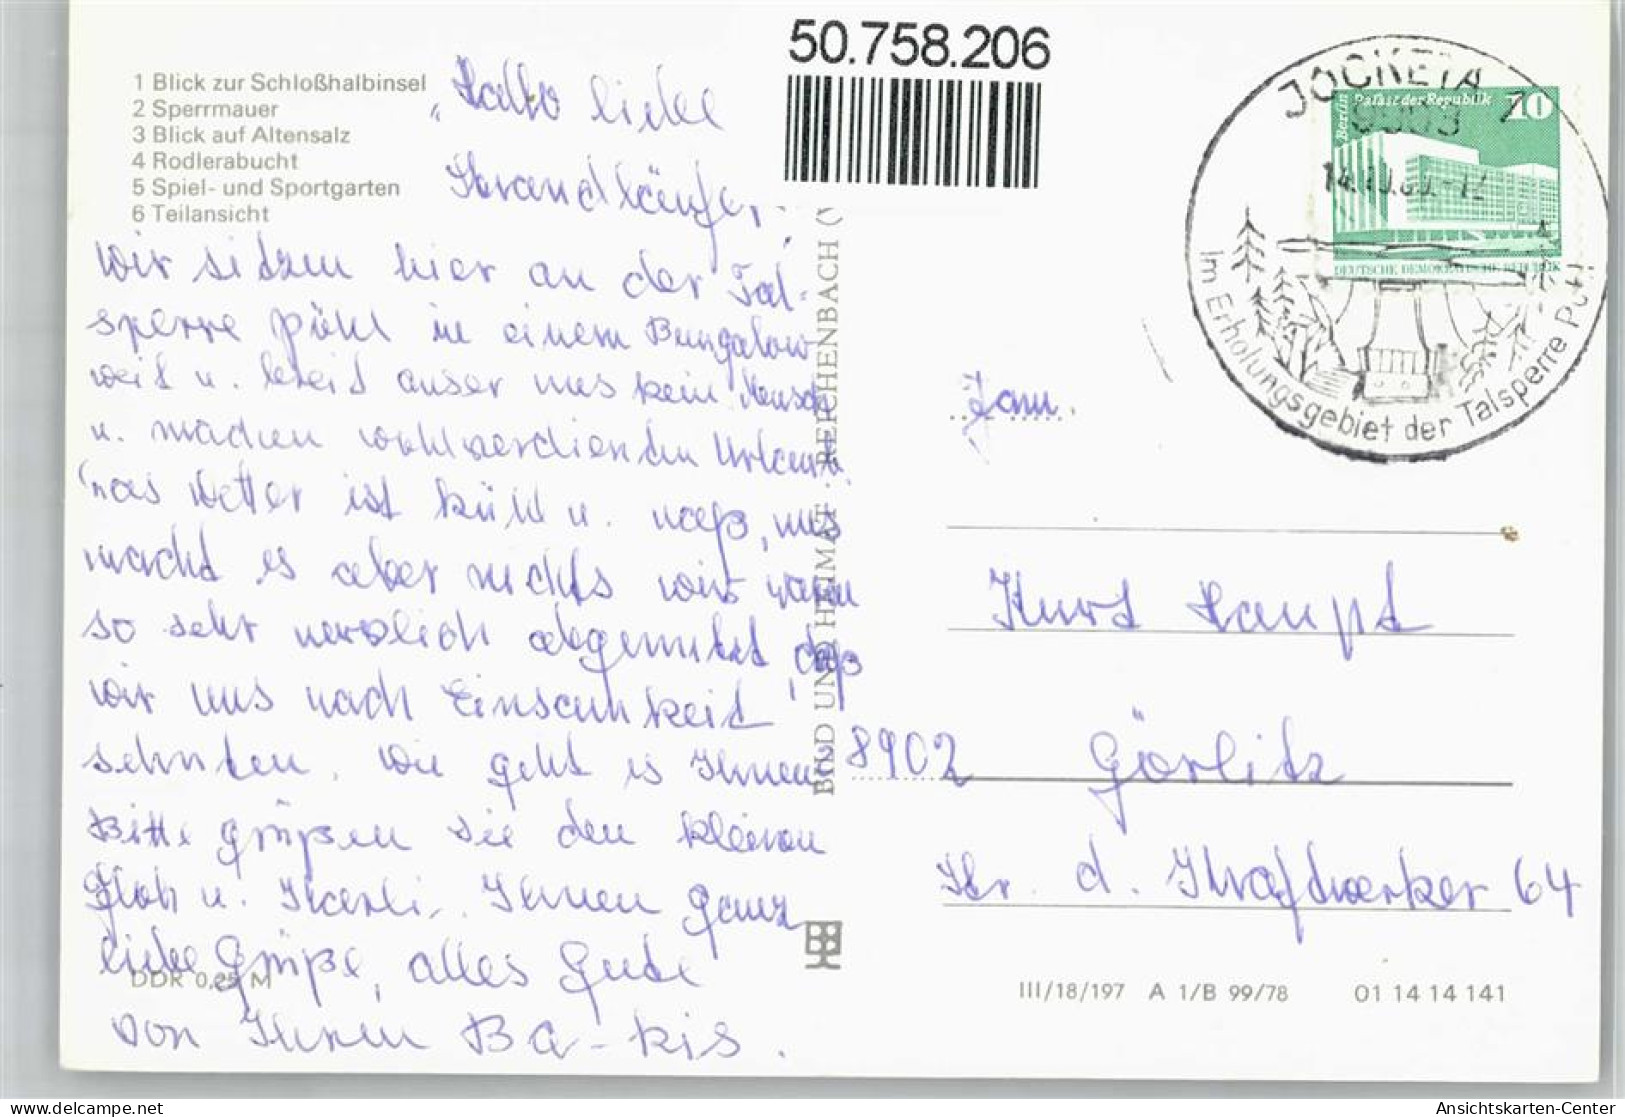 50.758.206
1 Blick zur Schloßhalbinsel
2 Sperrmauer
3 Blick auf Altensalz
4 Rodlerabucht
5 Spiel- und Sportgarten
6 Teilansicht
"Hallo liebe
Strandläufer,"
wir sitzen hier an der Tal-
sperre Pöhl in einem Bungalow
weit u. breit auser uns kein Mensch
u. machen wohlverdienten Urlaub.
Das Wetter ist kühl u. naß, uns
macht es aber nichts wir waren
so sehr nervlich abgenutzt, daß
wir uns nach Einsamkeit
sehnten. Wie geht es Ihnen?
Bitte grüßen sie den kleinen
Floh u. Karli. Ihnen ganz
liebe Grüße, alles Gute
von Ihren Ba-kis.
DDR 0,25 M
BILD UND HEIMAT REICHENBACH (V
JOCKETA 2
9903
14.10.80.-12
Im Erholungsgebiet der Talsperre Pöhl
Berlin Palast der Republik 10
DEUTSCHE DEMOKRATISCHE REPUBLIK
Fam.
Kurt Haupt
8902 Görlitz
Str. d. Kraftwerker 64
III/18/197 A 1/B 99/78 01 14 14 141
Ansichtskarten-Center
delcampe.net